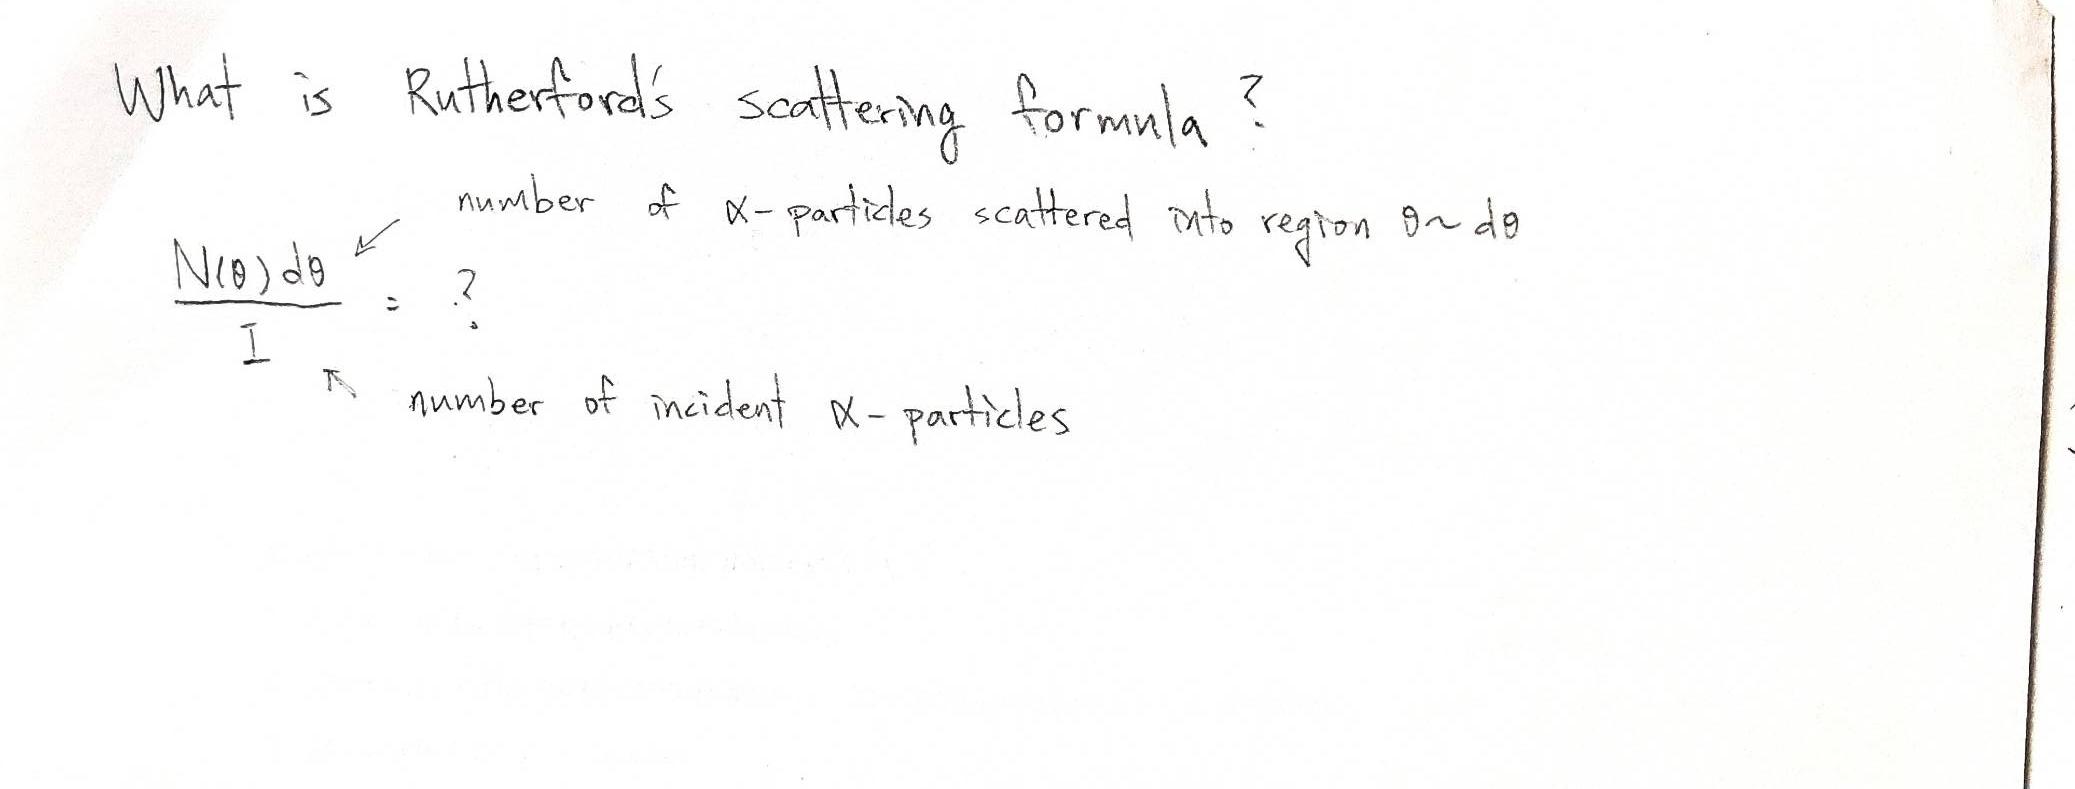 What is Rutherford's scattering formula ?
number of α-particles scattered into region θ~dθ
N(θ)dθ
I
= ?
number of incident α-particles